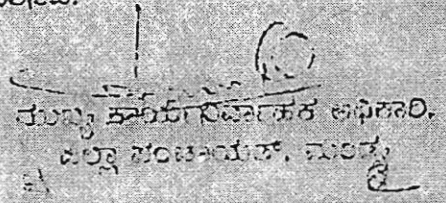 ಮುಖ್ಯ ಕಾರ್ಯನಿರ್ವಾಹಕ ಅಧಿಕಾರಿ.
ಜಿಲ್ಲಾ ಪಂಚಾಯತ್. ಮಂಡ್ಯ